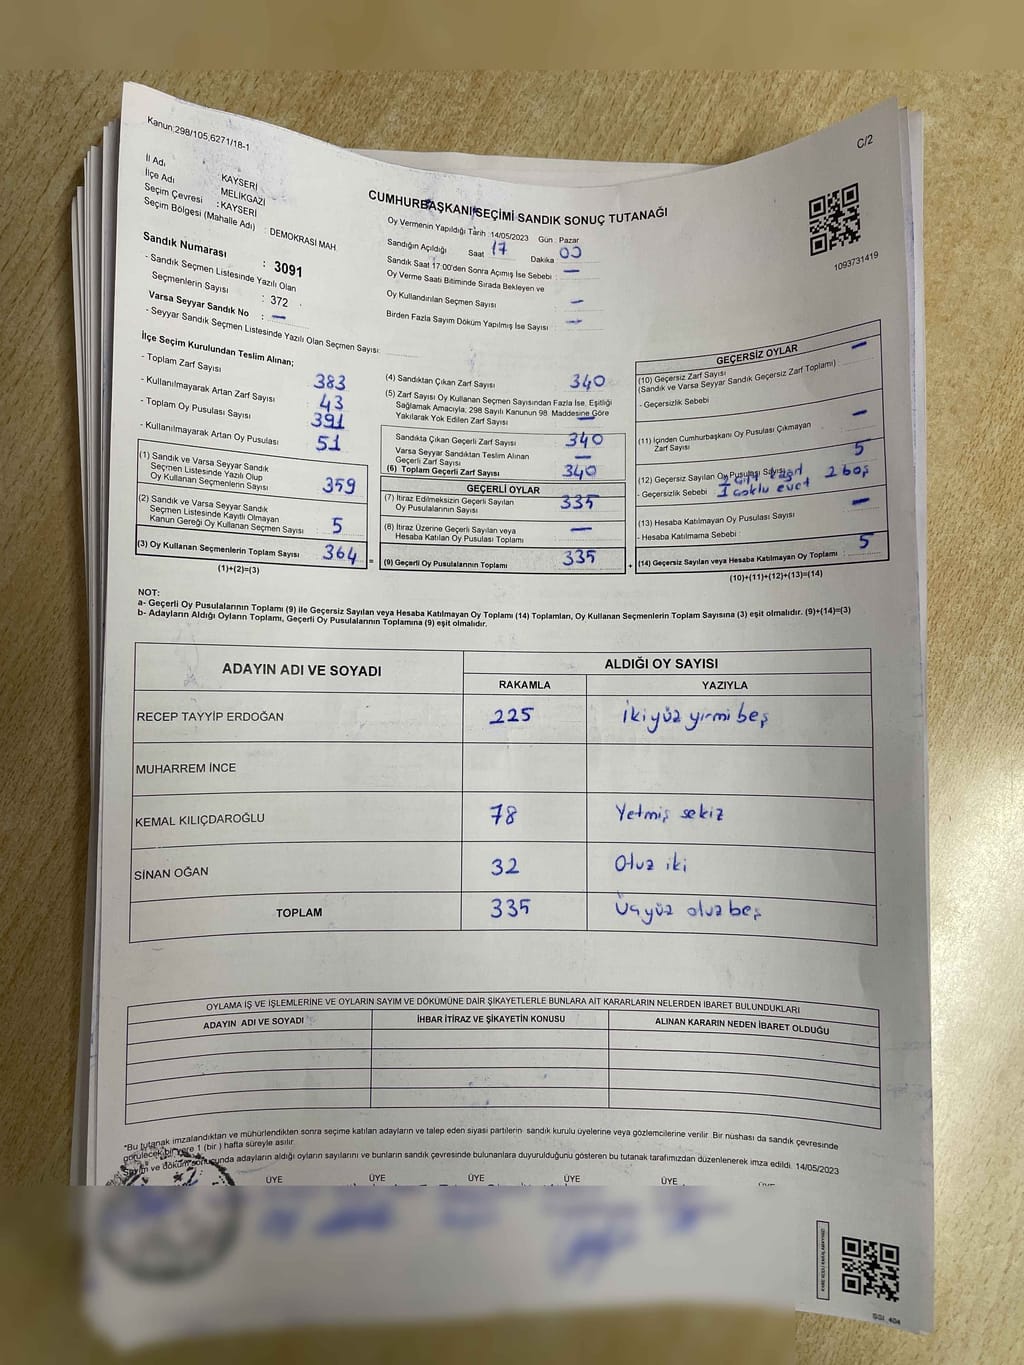 Kanun:298/105,6271/18-1
C/2
İl Adı : KAYSERİ
İlçe Adı MELİKGAZİ
Seçim Çevresi : KAYSERİ
Seçim Bölgesi (Mahalle Adı) : DEMOKRASİ MAH.
Sandık Numarası : 3091
- Sandık Seçmen Listesinde Yazılı Olan
Seçmenlerin Sayısı : 372
Varsa Seyyar Sandık No : —
- Seyyar Sandık Seçmen Listesinde Yazılı Olan Seçmen Sayısı:
CUMHURBAŞKANI SEÇİMİ SANDIK SONUÇ TUTANAĞI
Oy Vermenin Yapıldığı Tarih :14/05/2023 Gün : Pazar
Sandığın Açıldığı Saat 17 Dakika 00
Sandık Saat 17:00'den Sonra Açımış İse Sebebi : —
Oy Verme Saati Bitiminde Sırada Bekleyen ve
Oy Kullandırılan Seçmen Sayısı —
Birden Fazla Sayım Döküm Yapılmış İse Sayısı —
1093731419
İlçe Seçim Kurulundan Teslim Alınan;
- Toplam Zarf Sayısı 383
- Kullanılmayarak Artan Zarf Sayısı 43
- Toplam Oy Pusulası Sayısı 391
- Kullanılmayarak Artan Oy Pusulası 51
(1) Sandık ve Varsa Seyyar Sandık
Seçmen Listesinde Yazılı Olup
Oy Kullanan Seçmenlerin Sayısı 359
(2) Sandık ve Varsa Seyyar Sandık
Seçmen Listesinde Kayıtlı Olmayan
Kanun Gereği Oy Kullanan Seçmen Sayısı 5
(3) Oy Kullanan Seçmenlerin Toplam Sayısı 364 =
(1)+(2)=(3)
(4) Sandıktan Çıkan Zarf Sayısı 340
(5) Zarf Sayısı Oy Kullanan Seçmen Sayısından Fazla İse, Eşitliği
Sağlamak Amacıyla, 298 Sayılı Kanunun 98. Maddesine Göre
Yakılarak Yok Edilen Zarf Sayısı —
Sandıkta Çıkan Geçerli Zarf Sayısı 340
Varsa Seyyar Sandıktan Teslim Alınan
Geçerli Zarf Sayısı —
(6) Toplam Geçerli Zarf Sayısı 340
GEÇERLİ OYLAR
(7) İtiraz Edilmeksizin Geçerli Sayılan
Oy Pusulalarının Sayısı 335
(8) İtiraz Üzerine Geçerli Sayılan veya
Hesaba Katılan Oy Pusulası Toplamı —
(9) Geçerli Oy Pusulalarının Toplamı 335 +
GEÇERSİZ OYLAR
(10) Geçersiz Zarf Sayısı —
(Sandık ve Varsa Seyyar Sandık Geçersiz Zarf Toplamı)
- Geçersizlik Sebebi
(11) İçinden Cumhurbaşkanı Oy Pusulası Çıkmayan
Zarf Sayısı —
(12) Geçersiz Sayılan Oy Pusulası Sayısı 5
- Geçersizlik Sebebi 2 boş
1 çoklu evet
(13) Hesaba Katılmayan Oy Pusulası Sayısı —
- Hesaba Katılmama Sebebi
(14) Geçersiz Sayılan veya Hesaba Katılmayan Oy Toplamı 5
(10)+(11)+(12)+(13)=(14)
NOT:
a- Geçerli Oy Pusulalarının Toplamı (9) ile Geçersiz Sayılan veya Hesaba Katılmayan Oy Toplamı (14) Toplamları, Oy Kullanan Seçmenlerin Toplam Sayısına (3) eşit olmalıdır. (9)+(14)=(3)
b- Adayların Aldığı Oyların Toplamı, Geçerli Oy Pusulalarının Toplamına (9) eşit olmalıdır.
ADAYIN ADI VE SOYADI ALDIĞI OY SAYISI
RAKAMLA YAZIYLA
RECEP TAYYİP ERDOĞAN 225 ikiyüz yirmi beş
MUHARREM İNCE
KEMAL KILIÇDAROĞLU 78 Yetmiş sekiz
SİNAN OĞAN 32 Otuz iki
TOPLAM 335 Üçyüz otuz beş
OYLAMA İŞ VE İŞLEMLERİNE VE OYLARIN SAYIM VE DÖKÜMÜNE DAİR ŞİKAYETLERLE BUNLARA AİT KARARLARIN NELERDEN İBARET BULUNDUKLARI
ADAYIN ADI VE SOYADI İHBAR İTİRAZ VE ŞİKAYETİN KONUSU ALINAN KARARIN NEDEN İBARET OLDUĞU
*Bu tutanak imzalandıktan ve mühürlendikten sonra seçime katılan adayların ve talep eden siyasi partilerin sandık kurulu üyelerine veya gözlemcilerine verilir. Bir nüshası da sandık çevresinde
görülecek bir yere 1 (bir) hafta süreyle asılır.
Sayım ve döküm sonucunda adayların aldığı oyların sayılarını ve bunların sandık çevresinde bulunanlara duyurulduğunu gösteren bu tutanak tarafımızdan düzenlenerek imza edildi. 14/05/2023
ÜYE ÜYE ÜYE ÜYE ÜYE